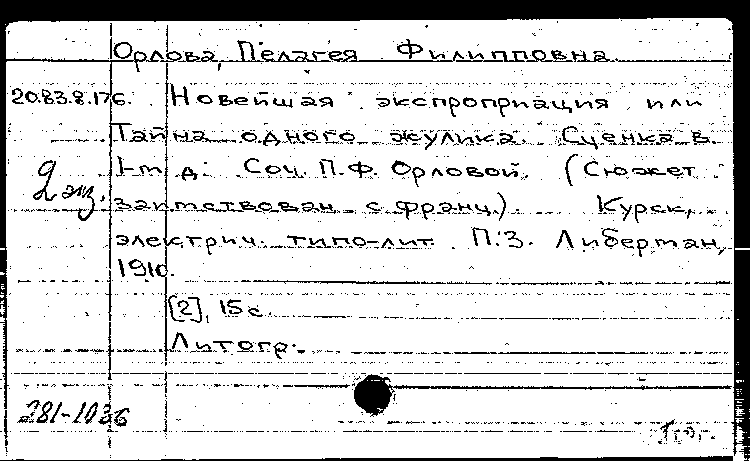 Орлова, Пелагея Филипповна
20.83.8.176. Новейшая экспроприация или
Тайна одного жулика. Сценка в
1-м д. Соч. П.Ф. Орловой. (Сюжет
2 экз. заимствован с франц.). Курск,
электрич. типо-лит П.З. Либерман,
1910.
[2], 15 с.
Литогр.
281-1036